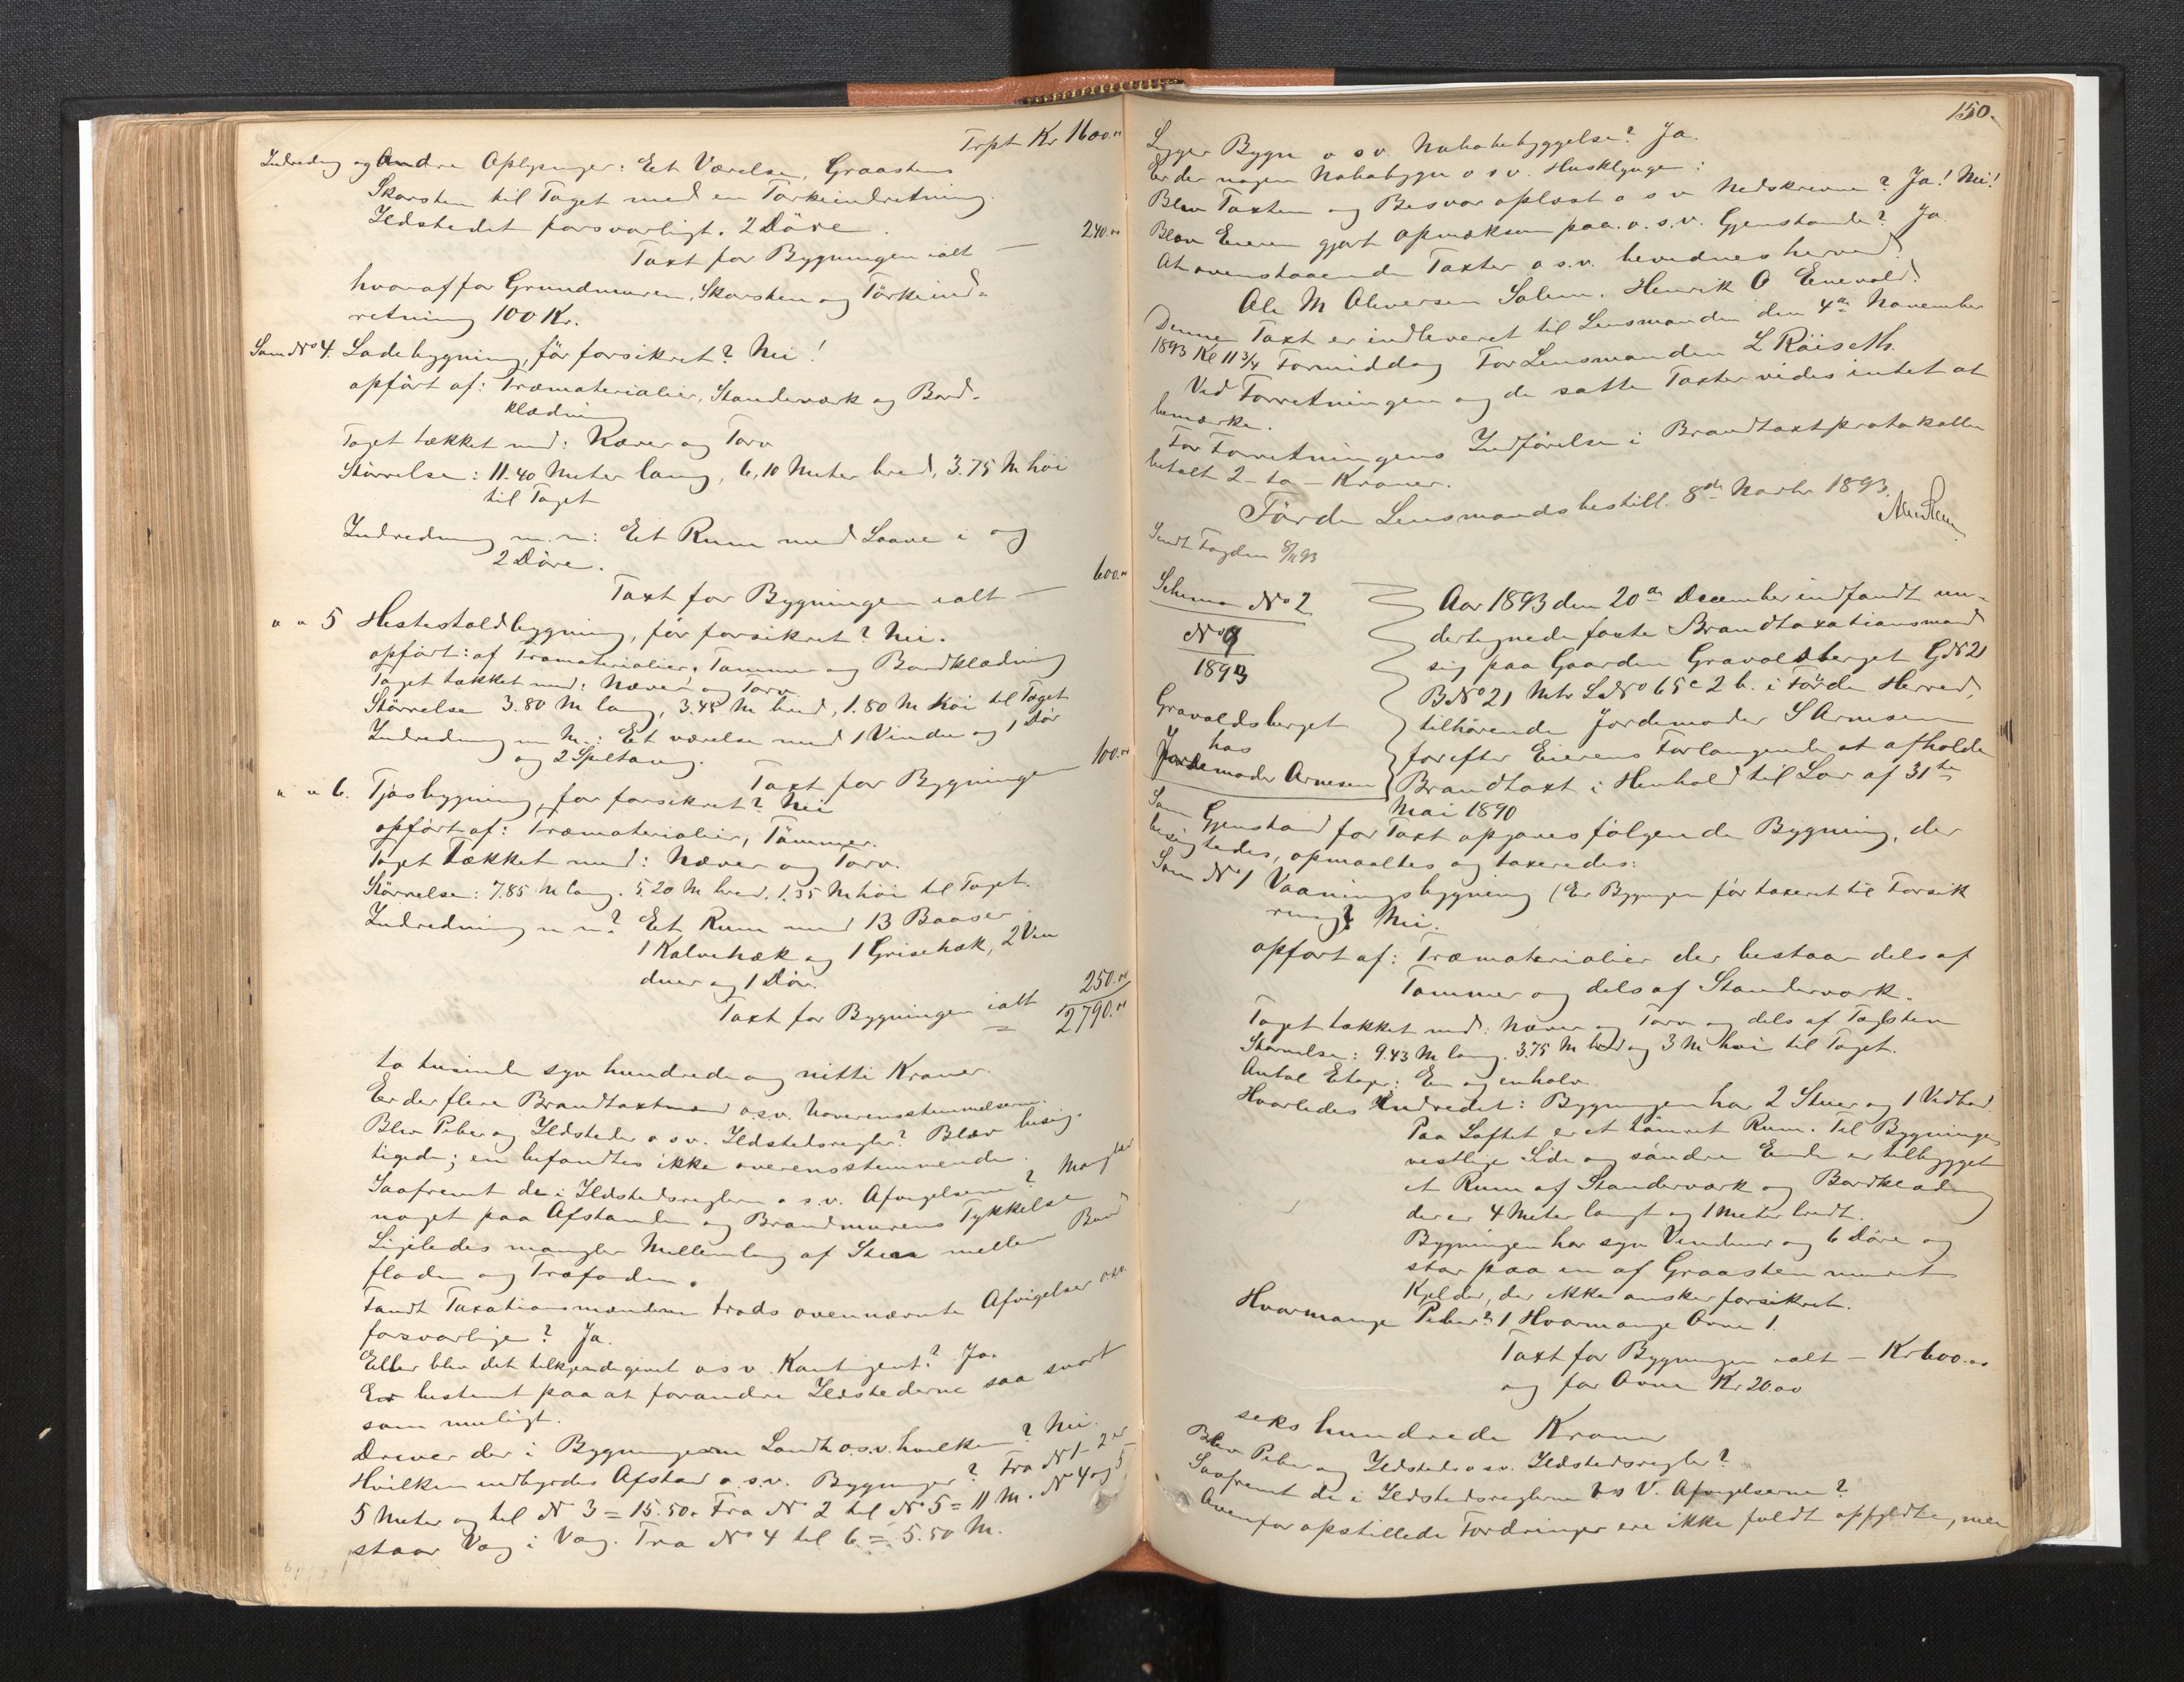 Trpt Kr 1600.00
Indredning og Andre Oplysninger: Et Værelse, Graastens
Skorsten til Taget med en Tørkeindretning.
Ildstedet forsvarligt. 2 Døre.
Taxt for Bygningen ialt — 240.00
hvoraf for Grundmuren, Skorsten og Tørkeind-
retning 100 Kr.
Som No 4. Ladebygning, før forsikret? Nei!
opført af: Træmaterialier, Standerværk og Bord-
klædning
Taget tækket med: Næver og Torv
Størrelse: 11.40 Meter lang, 6,10 Meter bred, 3.75 M høi
til Taget
Indredning m.m: Et Rum med Laave i og
2 Døre.
Taxt for Bygningen ialt — 600.00
" " 5 Hestestaldbygning, før forsikret? Nei.
opført: af Træmaterialier, Tømmer og Bordklædning
Taget tækket med: Næver og Torv.
Størrelse 3.80 M lang, 3.45 M bred, 1.80 M høi til Taget
Indredning m M.: Et værelse med 1 Vindu og 1 Dør
og 2 Spiltaug.
Taxt for Bygningen 100.00
" " 6. Fjøsbygning, før forsikret? Nei
opført af: Træmaterialier, Tømmer.
Taget Tækket med: Næver og Torv.
Størrelse: 7.85 M lang. 5.20 M bred. 1.35 M høi til Taget.
Indredning m m? Et Rum med 13 Baaser
1 Kalvehæk og 1 Grisehæk, 2 Vin
duer og 1 Dør.
Taxt for Bygningen ialt 250.00
= 2790.00
to tusinde syv hundrede og nitti Kroner.
Er der flere Brandtaxtmænd o.s.v. Uoverensstemmelserne.
Blev Piber og Ildsteder o s v. Ildstedsregler? Blev besig-
tigede; en befandtes ikke overensstemmende.
Saafremt de i Ildstedsreglerne o s v. Afvigelserne? Mangler
noget paa Afstanden og Brandmurens Tykkelse
Ligeledes mangler Mellemlag af Sten mellem Bund
fladen og Træfoden.
Fandt Taxationsmændene trods ovennævnte Afvigelser osv.
forsvarlige? Ja.
Eller blev det tilkjendegivet o s v. Kontigent? Ja.
Er bestemt paa at forandre Ildstederne saa snart
som muligt.
Drives der i Bygningerne Landh o.s.v. hvilken? Nei.
Hvilken indbyrdes Afstand o.s.v. Bygninger? Fra No 1-2 er
5 Meter og til No 3 = 15.50. Fra No 2 til No 5 = 11 M. No 4 og 5
staar Væg i Væg. Fra No 4 til 6 = 5.50 M.
150.
Ligger Bygn o s v. Nabobebyggelse? Ja.
Er der nogen Nabobygn o s v. Husklynge:
Blev Taxten og Besvar oplæst o s v Nedskrevne? Ja! Nei!
Blev Eieren gjort opmærksom paa. o. s. v. Gjenstande? Ja
At ovenstaaende Taxter o s.v. bevidnes herved.
Ole M Aliversen Solem. Henrik O Enevold.
Denne Taxt er indleveret til Lensmanden den 4de November
1893 Kl 11 3/4 Formiddag For Lensmanden L Röiseth.
Ved Forretningen og de satte Taxter vides intet at
bemærke.
For Forretningens Indførelse i Brandtaxtprotokollen
betalt 2 - to - Kroner.
Førde Lensmandsbestill. 8de Novbr 1893.
Sendt Fogden 8/11 93
Schema No 2
No 9
1893
Gravoldsberget
hos
Jordemoder Arnesen
Aar 1893 den 20de December indfandt un-
dertegnede faste Brandtaxationsmænd
sig paa Gaarden Gravoldsberget GNo 21
BNo 21 Mtr LNo 65c 2 b. i Førde Herred,
tilhørende Jordemoder S Arnesen
for efter Eierens Forlangende at afholde
Brandtaxt i Henhold til Lov af 31te
Mai 1890
Som Gjenstand for Taxt opgaves følgende Bygning, der
besigtedes, opmaaltes og taxeredes:
Som No 1 Vaaningsbygning (Er Bygningen før taxeret til Forsik
ring? Nei.
opført af: Træmaterialier der bestaar dels af
Tømmer og dels af Standerværk.
Taget tækket med: Næver og Torv og dels af Taglsten
Størrelse: 9.43 M lang. 3.75 M bred og 3 M høi til Taget.
Antal Etager: En og en halv.
Hvorledes Indredet: Bygningen har 2 Stuer og 1 Vedbod.
Paa Loftet er et tømret Rum. Til Bygningens
vestlige Side og søndre Ende er tilbygget
et Rum af Standerværk og Bordklædning
der er 4 Meter langt og 1 Meter bredt.
Bygningen har syv Vinduer og 6 Døre og
staar paa en af Graasten muret
Kjelder, der ikke ønskes forsikret.
Hvormange Piber? 1 Hvormange Ovne 1.
Taxt for Bygningen ialt — Kr 600.00
og for Ovnen Kr 20.00
seks hundrede Kroner
Blev Piber og Ildsteds o s v. Ildstedsregler?
Saafremt de i Ildstedsreglerne O s V. Afvigelserne?
Ovenfor opstillede Fordringer ere ikke fuldt opfyldte, men